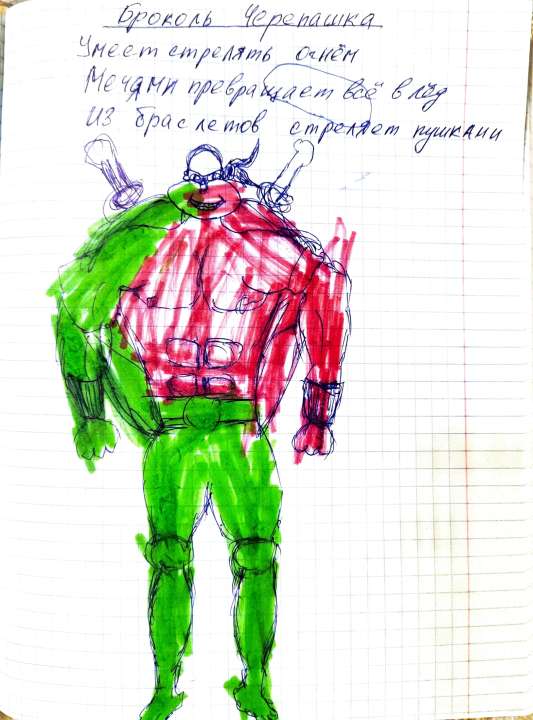 Броколь Черепашка
Умеет стрелять огнём
Мечами превращает всё в лёд
Из браслетов стреляет пушками